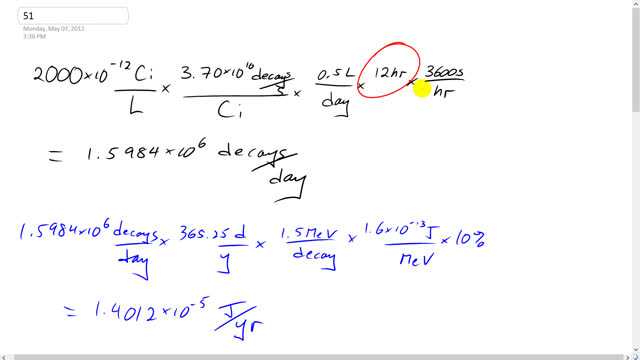 51
Monday, May 07, 2012
3:38 PM
2000×10⁻¹² Ci/L × 3.70×10¹⁰ decays/s/Ci × 0.5L/day × 12hr × 3600s/hr
= 1.5984×10⁶ decays/day
1.5984×10⁶ decays/day × 365.25 d/y × 1.5 MeV/decay × 1.6×10⁻¹³ J/MeV × 10%
= 1.4012×10⁻⁵ J/yr